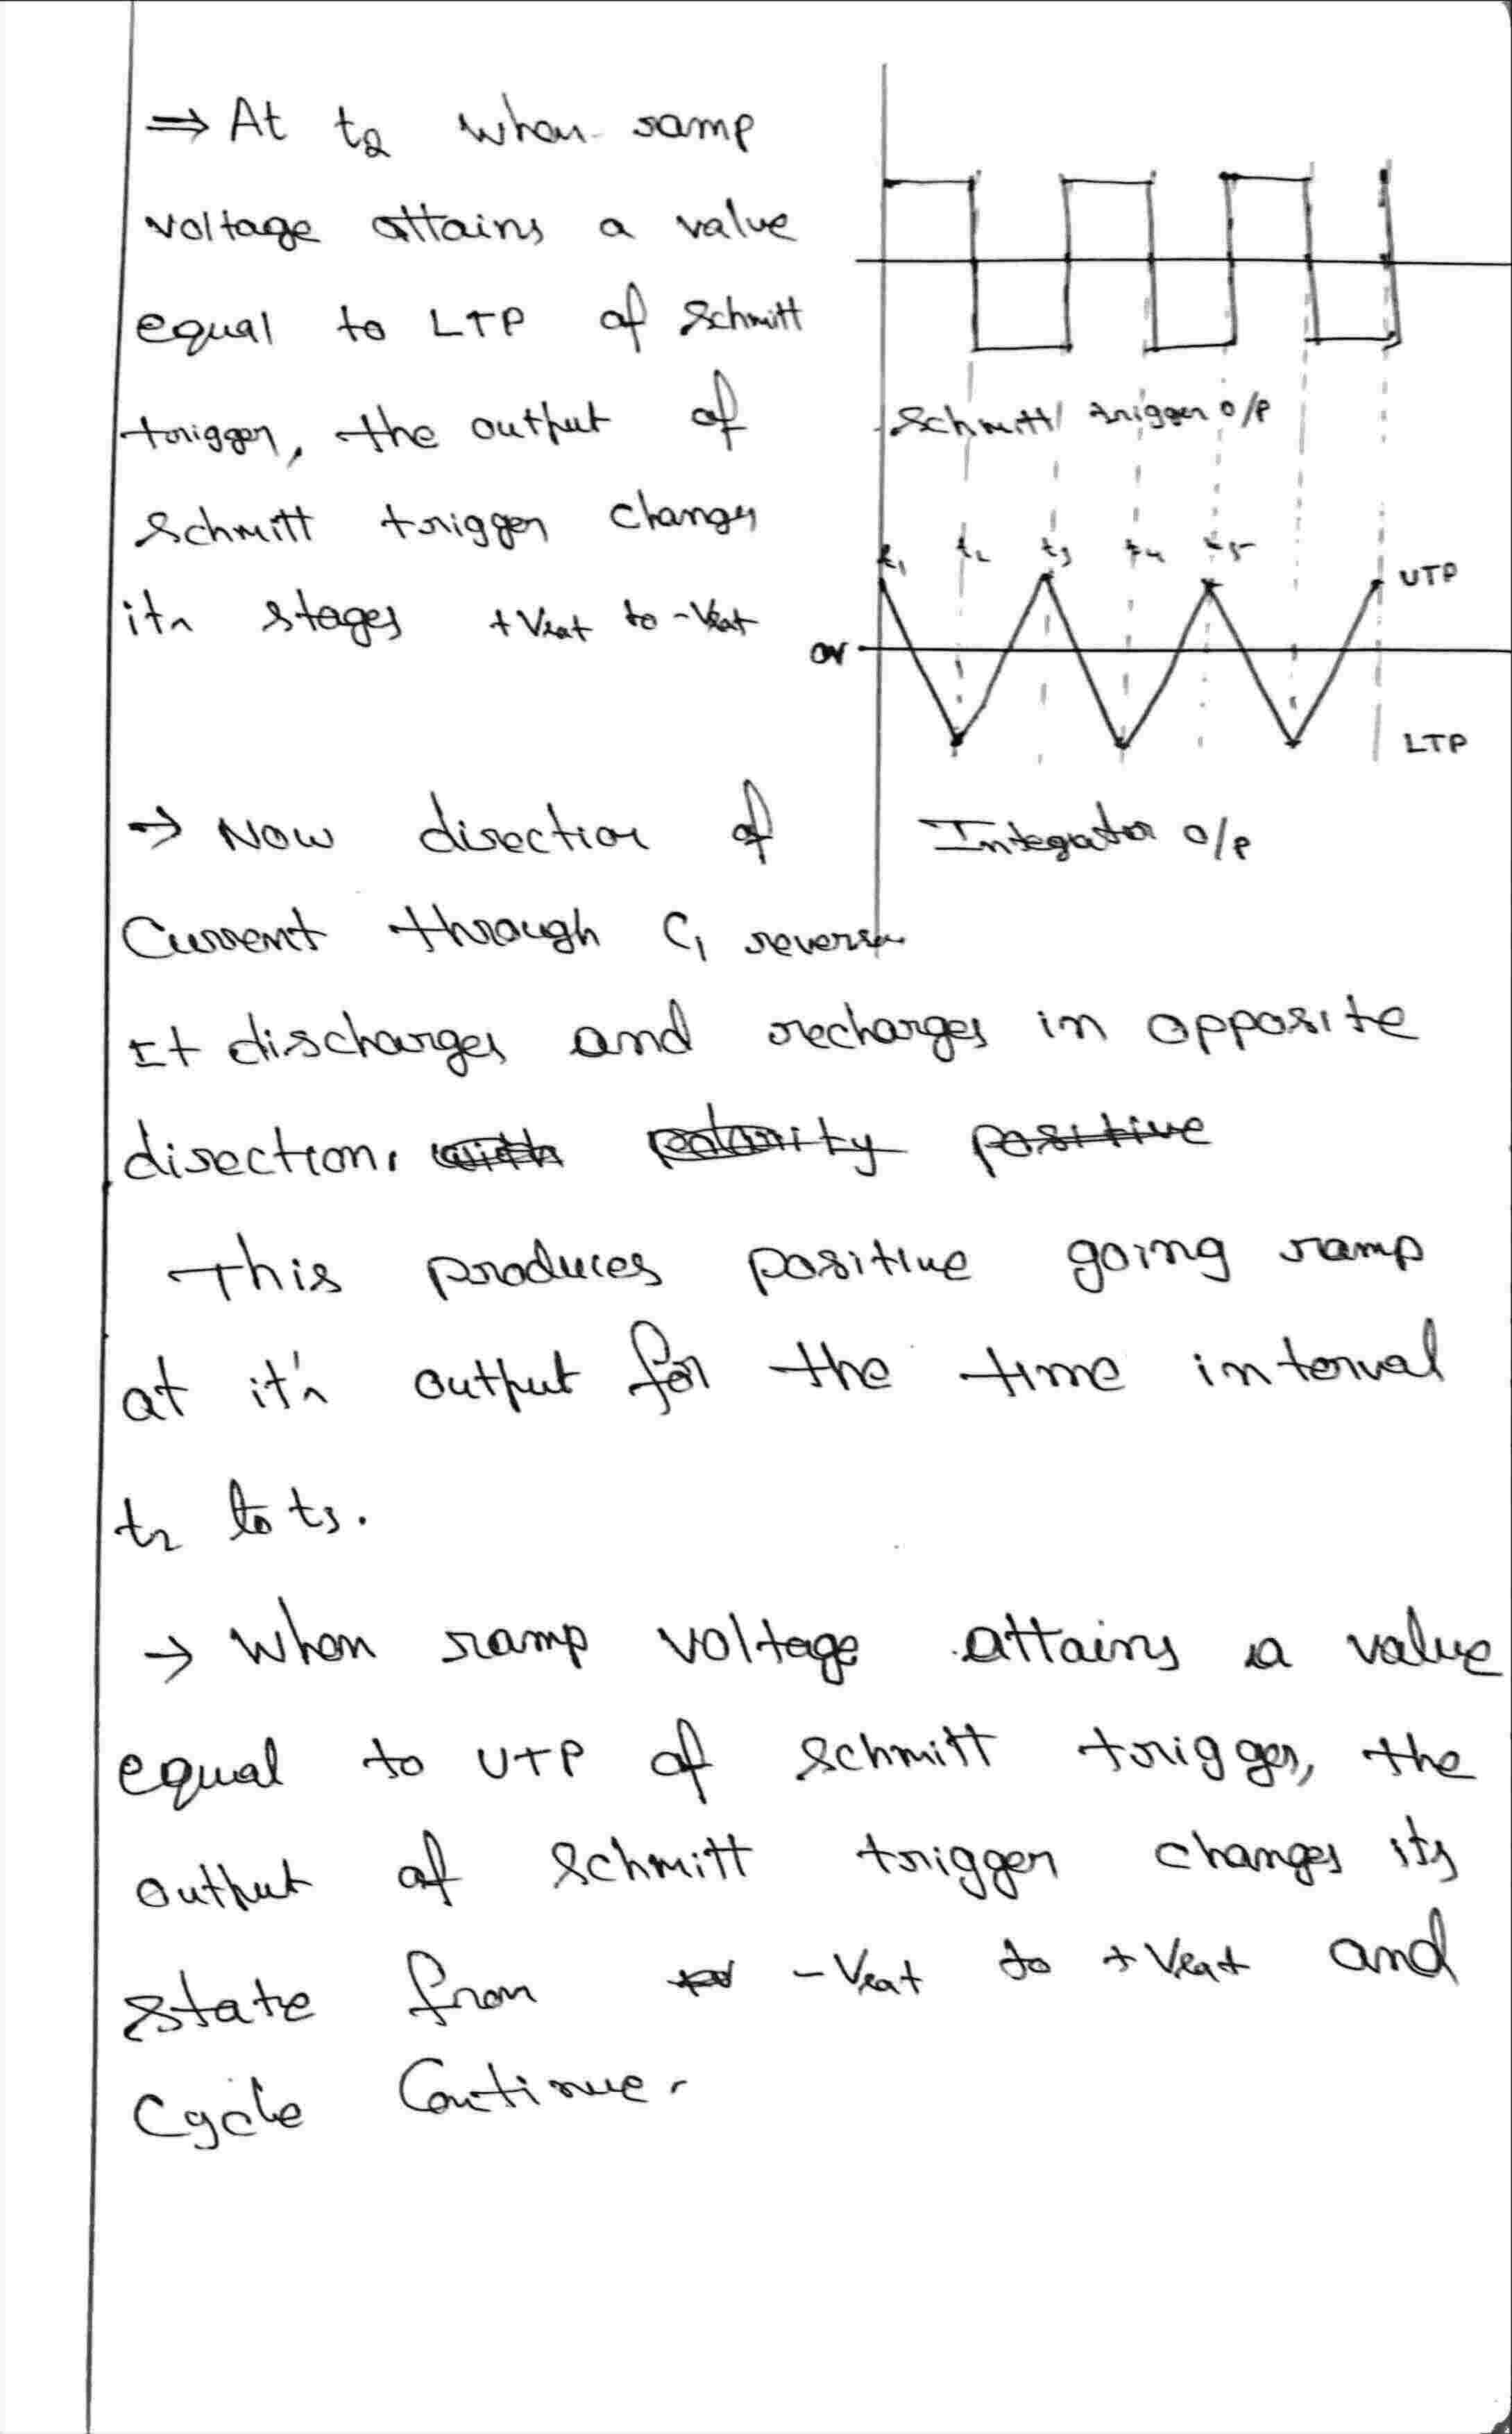 ⇒ At t2 when ramp
voltage attains a value
equal to LTP of Schmitt
trigger, the output of
Schmitt trigger changes
its stages +Vsat to -Vsat
Schmitt trigger o/p
t1 t2 t3 t4 t5
UTP
0V
LTP
Integrator o/p
→ Now direction of
Current through C1 reverse
It discharges and recharges in opposite
direction. with polarity positive
This produces positive going ramp
at it's output for the time interval
t2 to t3.
→ When ramp voltage attains a value
equal to UTP of Schmitt trigger, the
output of Schmitt trigger changes its
state from -Vsat to +Vsat and
Cycle Continue.